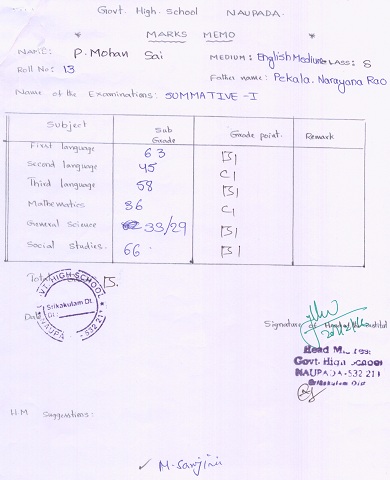 Govt. High. School NAUPADA.
MARKS MEMO
NAME: P. Mohan Sai
MEDIUM: English Medium CLASS: 8
Roll No: 13
Father name: Pekala. Narayana Rao
Name of the Examinations: SUMMATIVE - I
Subject Sub Grade Grade point. Remark
First language 63 B1
Second language 45 C1
Third language 58 B1
Mathematics 36 C1
General Science 33/29 B1
Social Studies. 66 B1
Total B.
VT HIGH SCHOOL
Srikakulam Dt
Dt:
NAUPA 532 21
Date
Signature of
Head M
Govt. High School
NAUPADA-532 211
Srikakulam Dist
H.M Suggestions:
M. Sanjini